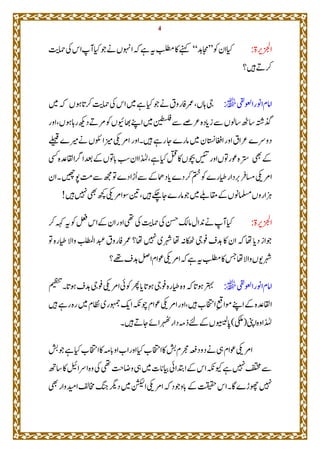 4
الجزیرۃ: کیا ان کو ''مجاہد'' کہنے کا مطلب یہ ہے کہ انہوں نے جو کیا آپ اس کی حمایت
کرتے ہیں؟
امام انور العولقی: جی ہاں، عمر فاروق نے جو کیا ہے میں اس کی حمایت کرتا ہوں کہ میں
گذشتہ ساٹھ سالوں سے زیادہ عرصے سے فلسطین میں اپنے بھائیوں کو مرتے دیکھ رہا ہوں، اور
دوسرے عراق اور افغانستان میں مارے جا رہے ہیں۔ اور امریکی میزائلوں نے میرے قبیلے
کے بھی سترہ عورتوں اور تئیس بچوں کا قتل کیا ہے، لہٰذا ان سب باتوں کے بعد اگر القاعدہ کسی
امریکی مسافر بردار طیارے کو ختم کر دے یا دھماکے سے اڑا دے تو مجھ سے مت پوچھیں۔ ان
ہزاروں مسلمانوں کے مقابلے میں جو مارے جا چکے ہیں، تین سو امریکی کچھ بھی نہیں!
الجزیرۃ: آپ نے ندال مالک حسن کی حمایت کی تھی اور ان کے اس فعل کو یہ کہہ کر
جواز دیا تھا کہ ان کا ہدف فوجی ٹھکانہ تھا نہ کہ شہری، کیا عمر فاروق عبد المطلب والا طیارہ تو
شہریوں والا تھا جس کا مطلب یہ ہے کہ امریکی عوام اصل ہدف تھے؟
امام انور العولقی: بہتر ہوتا کہ وہ طیارہ فوجی ہوتا یا پھر کوئی امریکی فوجی ہدف ہوتا۔ تنظیم
القاعدہ کے اپنے مواقع انتخاب ہیں، اور امریکی عوام چونکہ ایک جمہوری نظام میں رہ رہے ہیں
لہٰذا وہ اپنی (ملکی) پالیسیوں کے لئے ذمہ دار ٹھہرائے جاتے ہیں۔
امریکی عوام ہی نے دو دفعہ مجرم بش کا انتخاب کیا اور اب اوباما کا انتخاب کیا ہے جو بش
سے مختلف نہیں ہے کیونکہ اس کے ابتدائی بیانات میں ہی یہ وضاحت تھی کہ وہ اسرائیل کا ساتھ
نہیں چھوڑے گا۔ اس حقیقت کے باوجود کہ امریکی الیکشن میں دیگر جنگ مخالف امیدوار بھی